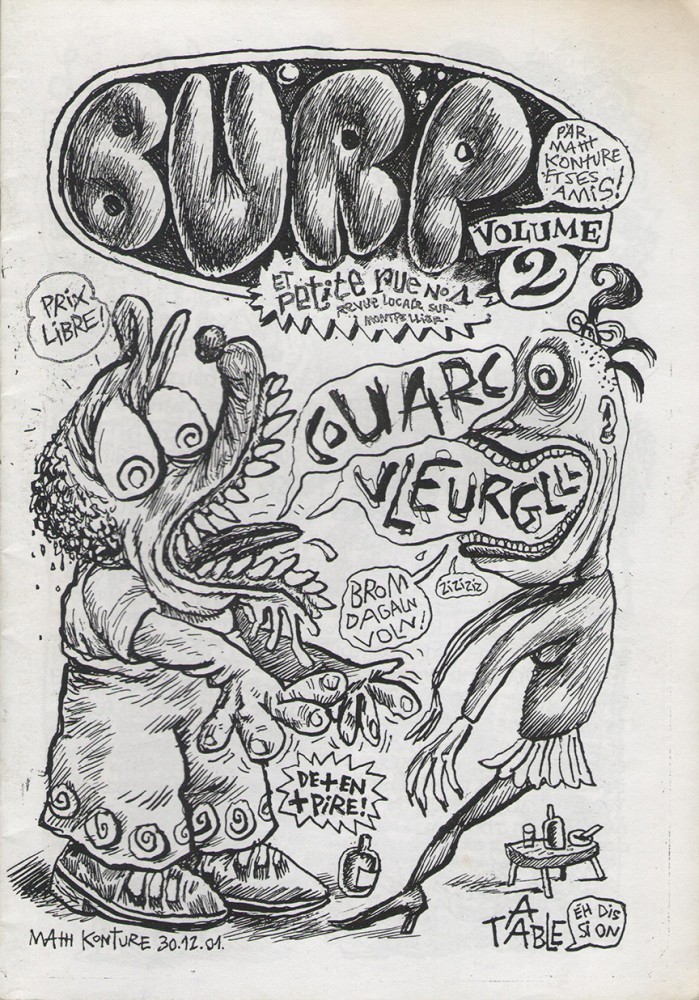 BURP
PAR
MATTT
KONTURE
ET SES
AMIS!
VOLUME
2
ET
PETITE RUE No 1
REVUE LOCALE SUR
MONTPELLIER
PRIX
LIBRE!
COUARC
VLEURGLLL
BROM
DAGALN
VOLN!
ZiZiZiZ
DE+EN
+PiRE!
A
TABLE
ÉH DIS
SI ON
MATTT KONTURE 30.12.01.